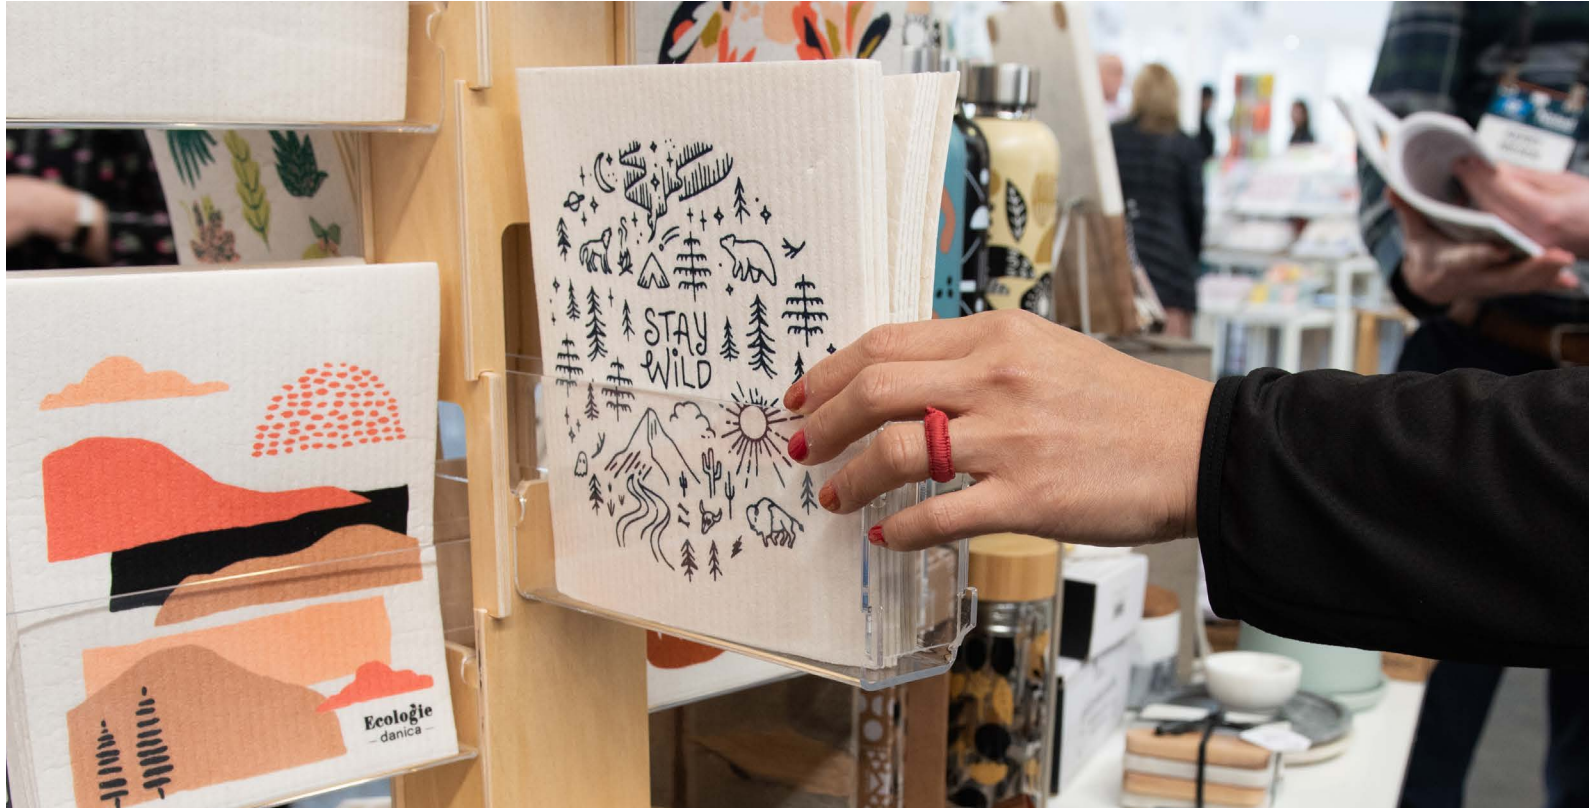 STAY
WILD
Ecologie
danica